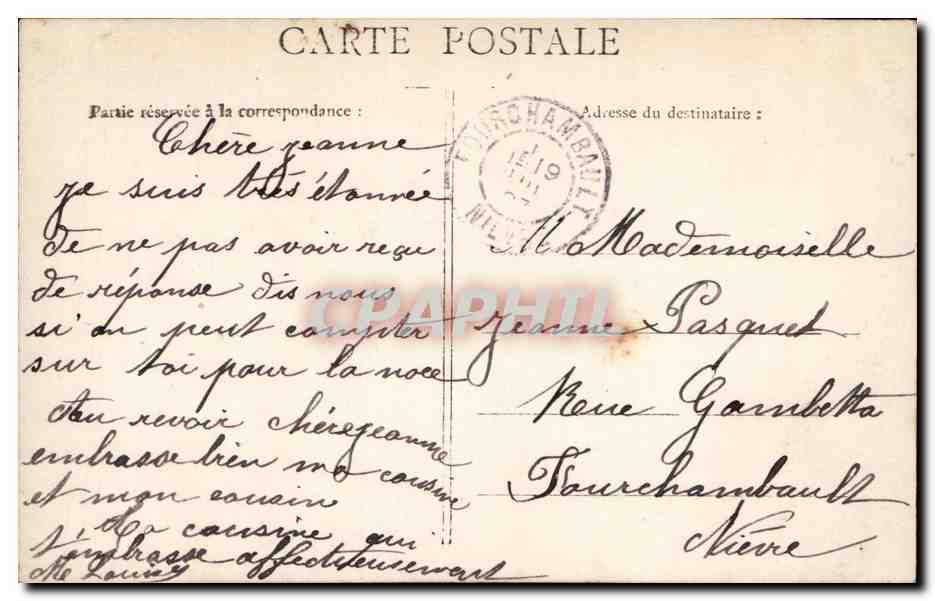 CARTE POSTALE
Partie réservée à la correspondance :
Adresse du destinataire :
Chère jeanne
je suis très étonnée
de ne pas avoir reçu
de réponse dis nous
si on peut compter
sur toi pour la noce
Au revoir chère jeanne
embrasse bien ma cousine
et mon cousin
Ta cousine qui
t'embrasse affectueusement
FOURCHAMBAULT
19
NIÈVRE
M Mademoiselle
jeanne Pasquet
Rue Gambetta
Fourchambault
Nièvre
CPAPHIL